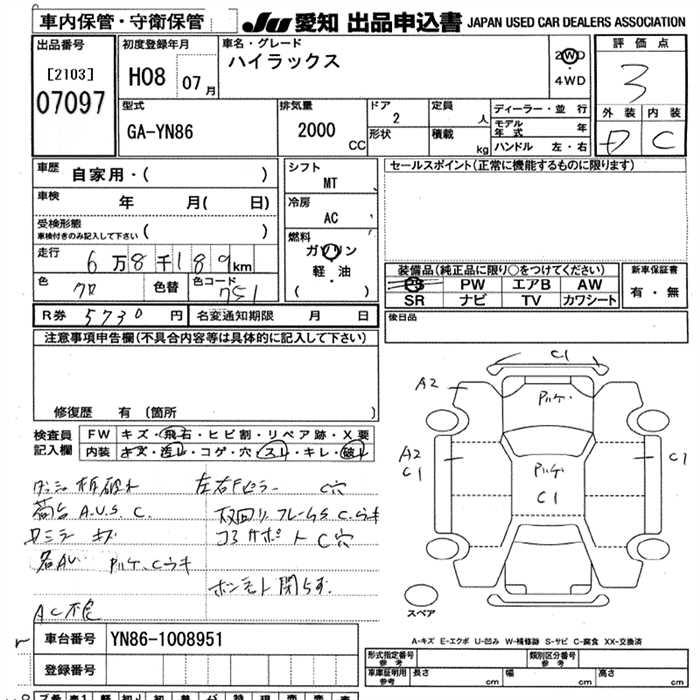 車内保管・守衛保管
JU 愛知 出品申込書 JAPAN USED CAR DEALERS ASSOCIATION
出品番号
[2103]
07097
初度登録年月
H08 07月
車名・グレード
ハイラックス
2WD
・
4WD
評価点
3
外装 内装
D C
型式
GA-YN86
排気量
2000 CC
ドア
2
形状
定員 人
積載 kg
ディーラー・並行
モデル年式 年
ハンドル 左・右
車歴 自家用・( )
車検 年 月( 日)
受検形態
車検付きのみ記入して下さい ( )
走行 6万8千189km
色 クロ 色替 色コード 751
シフト MT
冷房 AC
燃料
ガソリン
・
軽・油
( )
セールスポイント(正常に機能するものに限ります)
装備品(純正品に限り○をつけてください)
PS PW エアB AW
SR ナビ TV カワシート
新車保証書
有・無
R券 5730円 名変通知期限 月 日
後日品
注意事項申告欄(不具合内容等は具体的に記入して下さい)
修復歴 有 (箇所 )
検査員記入欄
FW キズ・飛石・ヒビ割・リペア跡・X要
内装 キズ・汚レ・コゲ・穴・スレ・キレ・破レ
左右Fピラー C穴
荷台 A.U.S.C.
コアサポート C穴
各AU
AC不良
C1
A2
A2
C1
C1
C1
スペア
A-キズ E-エクボ U-凹み W-補修跡 S-サビ C-腐食 XX-交換済
車台番号 YN86-1008951
登録番号
形式指定番号
参考
類別区分番号
参考
車庫証明用
参考
長さ cm 幅 cm 高さ cm